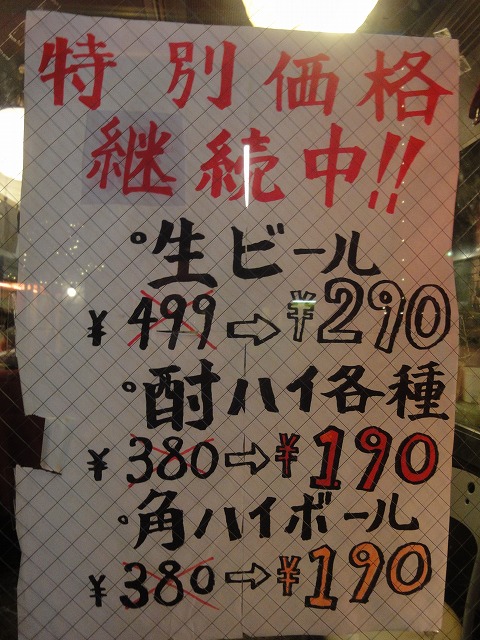 特別価格
継続中!!
°生ビール
¥499⇨¥290
°酎ハイ各種
¥380⇨¥190
°角ハイボール
¥380⇨¥190